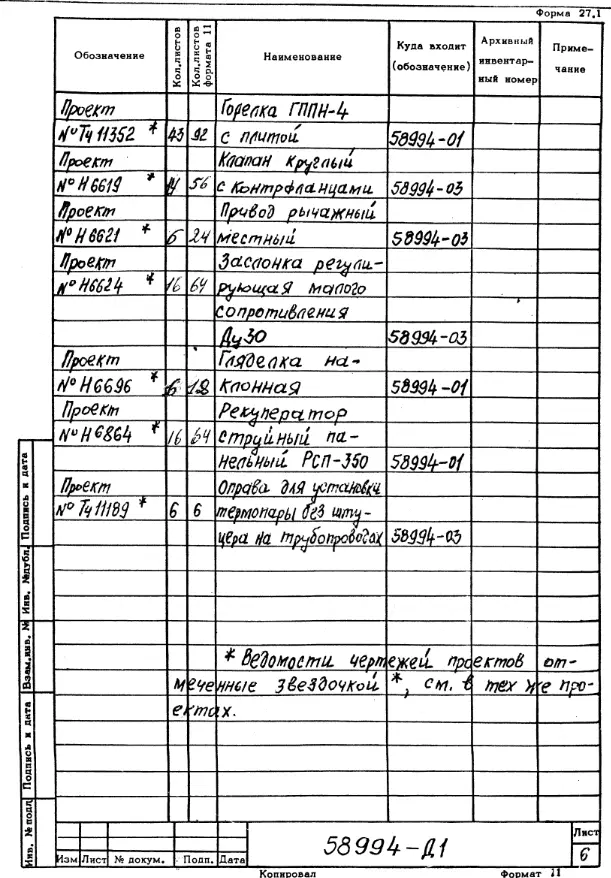 Форма 27.1
Обозначение Кол.листов Кол.листов формата 11 Наименование Куда входит (обозначение) Архивный инвентарный номер Примечание
Проект Горелка ГППН-4
№ТЧ 11352 * 43 92 с плитой 58994-01
Проект Клапан круглый
№Н6619 * 14 56 с контрфланцами 58994-03
Проект Привод рычажный
№Н6621 * 6 24 местный 58994-03
Проект Заслонка регули-
№Н6624 * 16 64 рующая малого
сопротивления
Ду30 58994-03
Проект Гляделка на-
№Н6696 * 6 18 клонная 58994-01
Проект Рекуператор
№Н6864 * 16 64 струйный па-
нельный РСП-350 58994-01
Проект Оправа для установки
№ТЧ11189 * 6 6 термопары без шту-
цера на трубопроводах 58994-03
* Ведомости чертежей проектов от-
меченные звездочкой *, см. в тех же про-
ектах.
Инв. №подл Подпись и дата Взам.инв. № Инв. №дубл. Подпись и дата
Изм Лист № докум. Подп. Дата
58994-Д1
Лист
6
Копировал Формат 11